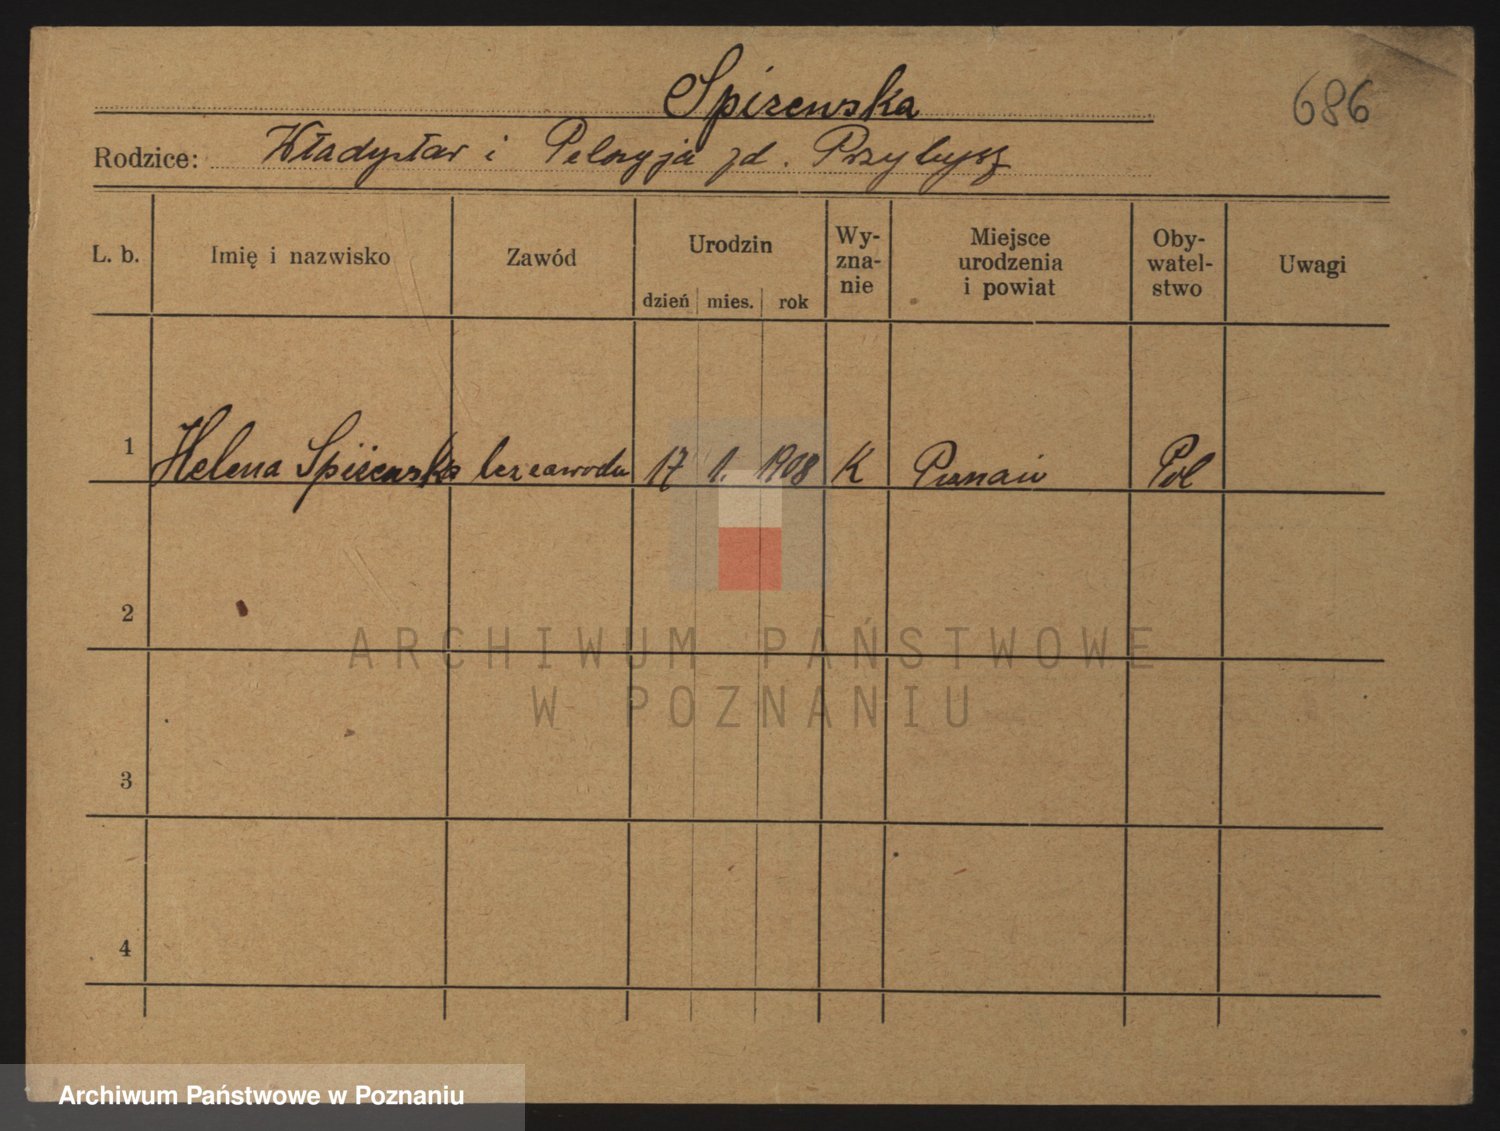 Spiżewska
686
Rodzice: Władysław i Pelagja zd. Przybysz
L. b. Imię i nazwisko Zawód Urodzin dzień mies. rok Wy-zna-nie Miejsce urodzenia i powiat Oby-watel-stwo Uwagi
1 Helena Spiżewska bez zawodu 17 1. 1908 K Poznań Pol
2
ARCHIWUM PAŃSTWOWE
W POZNANIU
3
4
Archiwum Państwowe w Poznaniu